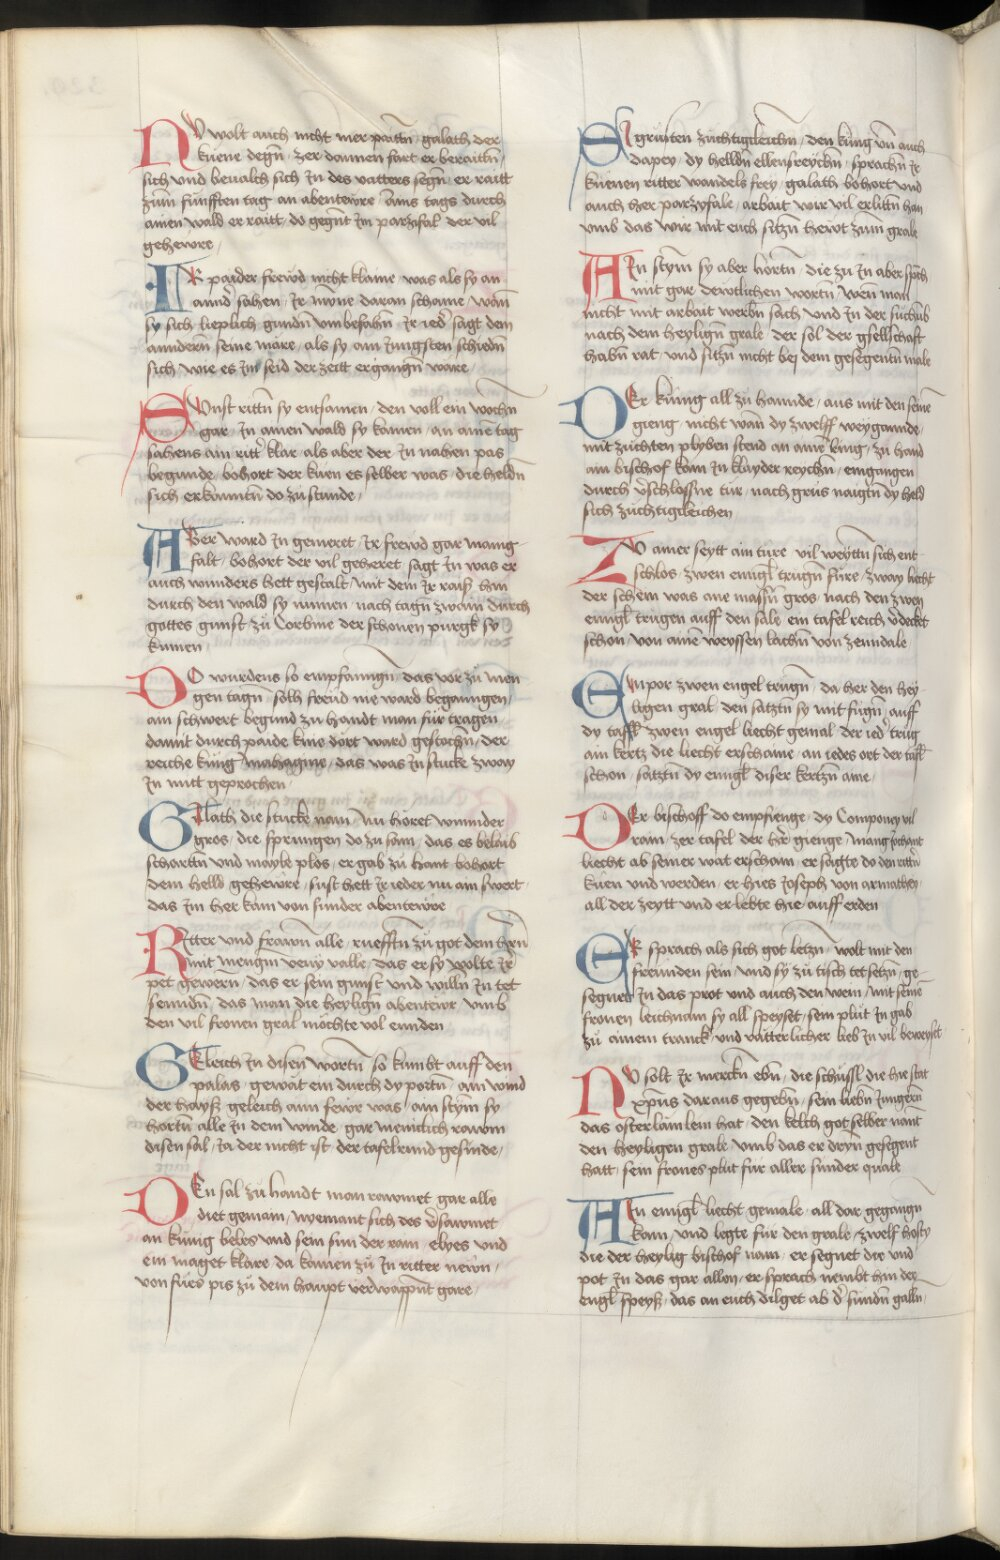 NV wolt auch nicht mer paittn galath der
küene degn zer dannen fart er beraittn
sich und bevalch sich in des vatters segn er raitt
zům funfften tag an abentewre ains tags durch
ainen wald er raitt do gegnt im parzifal der vil
gehewre
IR paider frewd nicht klaine was als sy an
annd sahen Ir myne daran schaine wann
sy sich lieplich gundn umbefahn Ir ied sagt dem
anndern seine märe als sy am iungsten schiedn
sich wie es im seid der zeitt ergangn ware
SVnst rittn sy entsamen den voll ein wochn
gar In ainen wald sy kamen an aine tag
sahens ain ritt klar als aber der in nahen pas
begunde bohort der kuen es selber was die heldn
sich erkanntn do zu stunde
ABer ward In gemeret Ir frewd gar manig
falt bohort der vil geheret sagt In was er
auch wunders hett gestalt mit dem Ir rais hin
durch den wald sy namen nach tagn zwain durch
gottes gunst zů Corbine der schonen purgk sy
kamen
DO wurdens so empfanngn das vor zů men
gen tagn solh freüd nie ward beganngen
ain schwert begund zu handt man für tragen
damit durch paide knie dört ward gestochn der
reiche künig mahagine das was In stucke zway
In mitt geprochen
GAlath die stucke nam nu horet wunnder
gros die sprungen do zů sam das es belaib
schartn und mayle plos er gab zů hant bohort
dem helld gehewre sust hett Ir ieder nu ain swert
das Im her kam von sunder abentewre
RItter und frawn alle rüefftn zu got dem hern
mit mengm veny valle das er sy wolte Ir
pet gewern das er sein gunst und willn In tet
senndn das man die heylign abentewr umb
den vil fronen gral mochte vol ennden
GEleich In disen wortn so kumbt auff den
palas gewat ein durch dy portn ain wind
der hayß geleich ann fewr was ain stym sy
hortn alle In dem winde gar menicklich rawm
disen sal Ia der nicht ist der tafelrund gesinde
DEn sal zu handt man rawmet gar alle
diet gemain nyemant sich des vsawmet
an künig beles und sein sun der rain elyes und
ein maget klare da kamen zů In ritter newn
von fües pis zů dem haupt verwappnt gare
SY grüsten züchtigcleichn den küng vn auch
dapey dy helldn ellensreychn sprachn Ir
küenen ritter wandels frey galath bohort und
auch her parzyfale arbait wir vil erlittn han
umb das wir mit euch sitzn hewt zum grale
AIn stym sy aber hörtn die zu In aber sprch
mit gar dewtlichen wortn wen man
nicht mit arbait werbn sach und In der suchub
nach dem heylign grale der sol der gsellschaft
habn rat und sitzn nicht bej dem gesegentn male
DEr künig all zů hannde aus mit den seine
gieng nicht wan dy zwelff weygannde
mit züchten plyben stend an aine king zu hand
ain bischof kom In klayder reychn eingangen
durch vschlossne tür nach grüs naigtn dy held
sich züchtigcleichen
ZV ainer seytt ain türe vil weyttn sich ent
schlos zwen enngl trugn füre zway liecht
der schein was ane massn gros nach den zwen
enngl trugen auff den sale ein tafel reich vdecket
schon von aine weyssen lachn von zenndale
ENnpor zwen engel trugn da her den hey
ligen gral den satztn sy mit fügn auff
dy taffl zwen engel liecht gemal der ied trüg
ain kertz die liecht erschaine an iedes ort der tafl
schon satztn dy enngl diser kertzn aine
DEr bischoff do empfienge dy Componey vil
rain zer tafel der her gienge mang
liecht ab seiner wat erscham er sagte do den rittn
küen und werden er hies Joseph von armathey
all der zeytt und er lebte hie auff erden
ER sprach als sich got letzn wolt mit den
freunden sein und sy zu tisch tet setzn ge-
segnet In das prot und auch den wein mit seine
fronen leichnam sy all speyset sein plüt In gab
zů ainem tranck und vätterlicher lieb In vil beweyset
NV solt Ir mercken ebn die schüssl die hie stat
xpus daraus gegebn sein liebn Jungern
das osterlämlein hat den kelch got selber nant
den heyligen grale umb das er dryn gesegent
hatt sein frones plüt für aller sunder quale
AIn enngl liecht gemale all dar gegangn
kam und legte für den grale zwelf hosty
die der heylig bischof nam er segnet die und
pot In das gar allen er sprach nembt hin der
engl speyß das an euch dilget ab d sündn galln